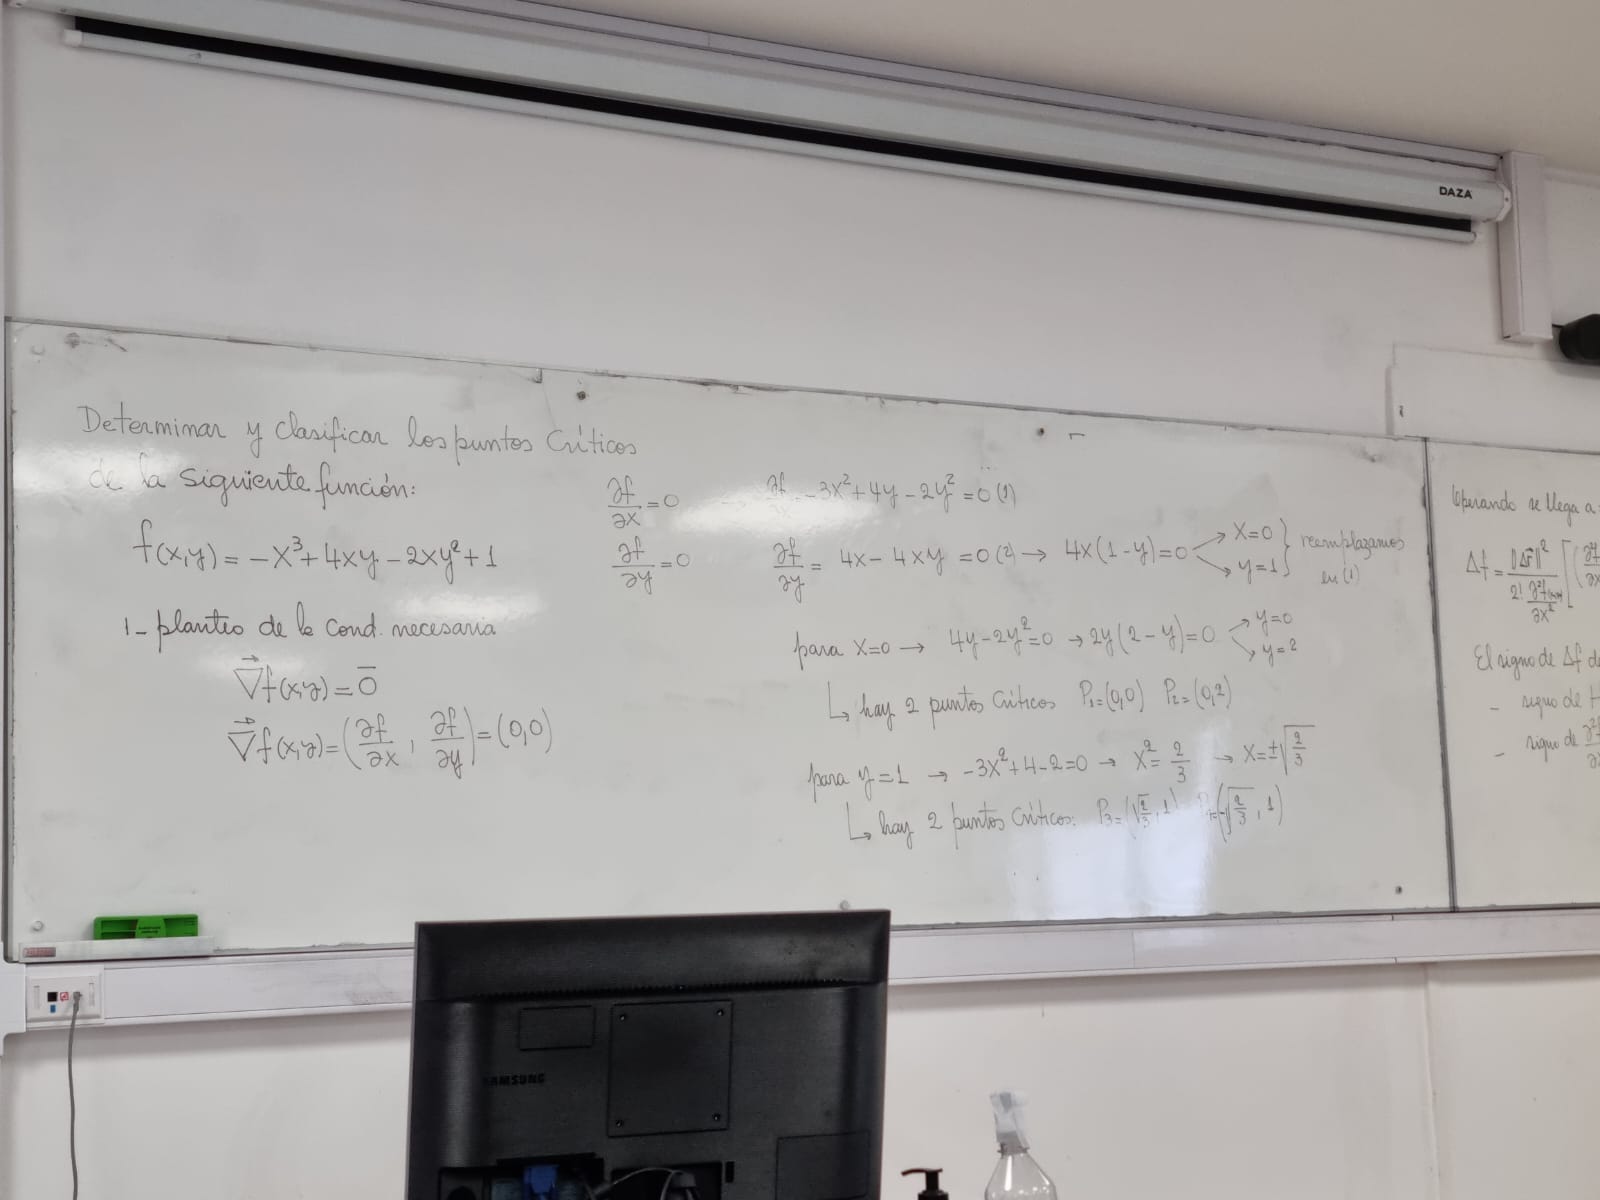 DAZA
Determinar y clasificar los puntos críticos
de la siguiente función:
f(x,y) = -x³ + 4xy - 2xy² + 1
1- planteo de la cond. necesaria
∇⃗f(x,y) = 0̄
∇⃗f(x,y) = (∂f/∂x , ∂f/∂y) = (0,0)
∂f/∂x = 0
∂f/∂y = 0
-3x² + 4y - 2y² = 0 (1)
∂f/∂y = 4x - 4xy = 0 (2) → 4x(1-y) = 0 → x=0 → y=1 } reemplazamos en (1)
para x=0 → 4y - 2y² = 0 → 2y(2-y) = 0 → y=0 → y=2
↳ hay 2 puntos críticos P₁=(0,0) P₂=(0,2)
para y=1 → -3x² + 4 - 2 = 0 → x² = 2/3 → x = ±√(2/3)
↳ hay 2 puntos críticos: P₃ = (√(2/3), 1) P₄ = (-√(2/3), 1)
Operando se llega a
Δf = ‖Δr⃗‖² / 2!
El signo de Δf
- signo de H
- signo de
SAMSUNG